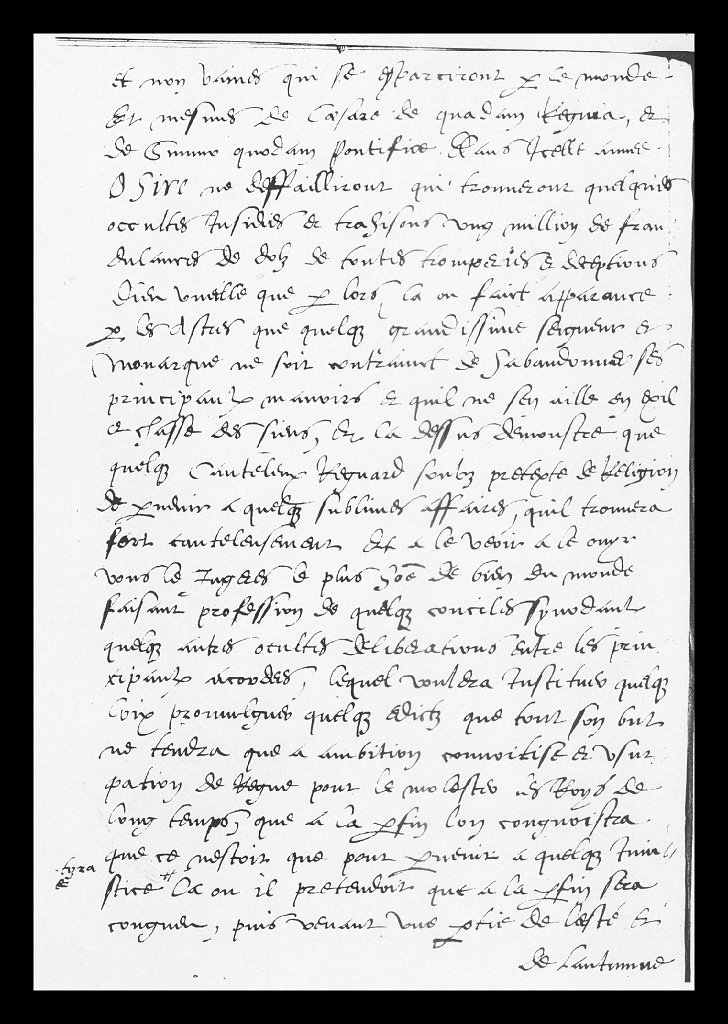 et non vaines qui se esparciront p le monde
Et mesmes de Cæsare de quadam Regina, et
de summo quodam Pontifice. Dans Icelle annee
O Sire ne deffailliront qui trouueront quelques
occultes Insidies et trahisons vng million de frau
dulances de dolz de toutes tromperies et deceptions
Dieu vueille que p lors, la ou faict apparance
p les Astres que quelq grandissime seigneur et
Monarque ne soit contrainct de sabandonner ses
principaulx manoirs et quil ne sen aille en exil
et chasse des siens, Et la dessus demonstre que
quelq Cauteleux Regnard soubz pretexte de Religion
de puenir a quelq sublimes affaires, quil trouuera
fort cauteleusement Et a le veoir a le ouyr
vous le Iugeres le plus hoe de bien du monde
faisant profession de quelq conciles synodant
quelq autres ocultes deliberations entre les prin
cipaulx acordes, lequel vouldra Instituer quelq
loix promulguer quelq edictz que tout son but
ne tendra que a ambition conuoitise et vsur
pation de Regne pour le molester es Roys de
long temps, que a la pfin lon congnoistra
que ce nestoit que pour puenir a quelq
tyra
stice la ou il pretendoit que a la pfin sera
congneu, puis venant vne ptie de lesté et
de lautumne